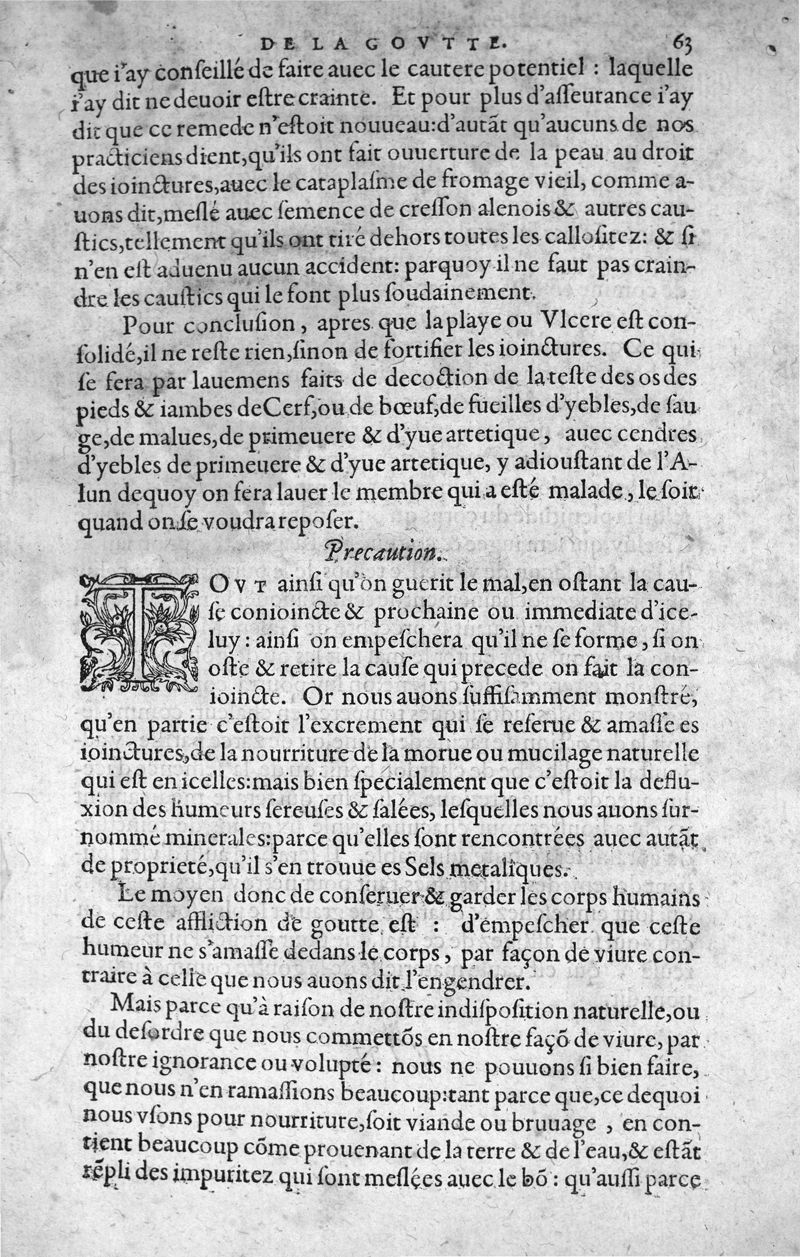 DE LA GOVTTE. 63
que i'ay conſeillé de faire auec le cautere potentiel : laquelle
i'ay dit ne deuoir eſtre crainte. Et pour plus d'aſſeurance i'ay
dit que ce remede n'eſtoit nouueau:d'autãt qu'aucuns de nos
practiciens dient,qu'ils ont fait ouuerture de la peau au droit
des ioinctures,auec le cataplaſme de fromage vieil, comme a-
uons dit,meſlé auec ſemence de creſſon alenois & autres cau-
ſtics,tellement qu'ils ont tiré dehors toutes les calloſitez: & ſi
n'en eſt aduenu aucun accident: parquoy il ne faut pas crain-
dre les cauſtics qui le font plus ſoudainement.
Pour concluſion, apres que la playe ou Vlcere eſt con-
ſolidé,il ne reſte rien,ſinon de fortifier les ioinctures. Ce qui
ſe fera par lauemens faits de decoction de la teſte des os des
pieds & iambes de Cerf,ou de bœuf,de fueilles d'yebles,de ſau
ge,de malues,de primeuere & d'yue artetique, auec cendres
d'yebles de primeuere & d'yue artetique, y adiouſtant de l'A-
lun dequoy on fera lauer le membre qui a eſté malade, le ſoir
quand on ſe voudra repoſer.
Precaution.
TOVT ainſi qu'on guerit le mal,en oſtant la cau-
ſe conioincte & prochaine ou immediate d'ice-
luy : ainſi on empeſchera qu'il ne ſe forme, ſi on
oſte & retire la cauſe qui precede on fait la con-
ioincte. Or nous auons ſuffiſamment monſtré,
qu'en partie c'eſtoit l'excrement qui ſe reſerue & amaſſe es
ioinctures,de la nourriture de la morue ou mucilage naturelle
qui eſt en icelles:mais bien ſpecialement que c'eſtoit la deflu-
xion des humeurs ſereuſes & ſalées, leſquelles nous auons ſur-
nommé minerales:parce qu'elles ſont rencontrées auec autãt
de proprieté,qu'il s'en trouue es Sels metaliques.
Le moyen donc de conſeruer & garder les corps humains
de ceſte affliction de goutte eſt : d'empeſcher que ceſte
humeur ne s'amaſſe dedans le corps, par façon de viure con-
traire à celle que nous auons dit l'engendrer.
Mais parce qu'à raiſon de noſtre indiſpoſition naturelle,ou
du deſordre que nous commettõs en noſtre façõ de viure, par
noſtre ignorance ou volupté : nous ne pouuons ſi bien faire,
que nous n'en ramaſſions beaucoup:tant parce que,ce dequoi
nous vſons pour nourriture,ſoit viande ou bruuage , en con-
tient beaucoup cõme prouenant de la terre & de l'eau,& eſtãt
rẽpli des impuritez qui ſont meſlées auec le bõ : qu'auſſi parce